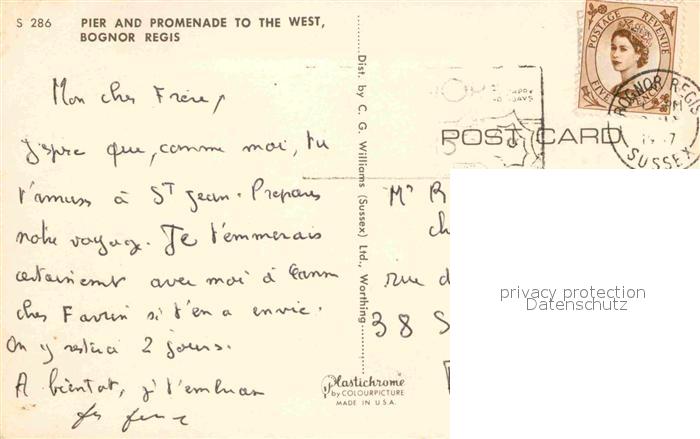 S 286 PIER AND PROMENADE TO THE WEST,
BOGNOR REGIS
Mon cher Frère,
J'espère que, comme moi, tu
t'amuses à St Jean. Prepares
notre voyage. Je t'emmerais
certainement avec moi à
chez Favrin si t'en a envie.
On y restera 2 jours.
A bientot, j' t'embrasse
Dist. by C. G. Williams (Sussex) Ltd., Worthing
Plastichrome
by COLOURPICTURE
MADE IN U.S.A.
POST CARD
POSTAGE REVENUE
FIVE PENCE
BOGNOR REGIS
SUSSEX
Mr R
ch
rue d
38 S
privacy protection
Datenschutz